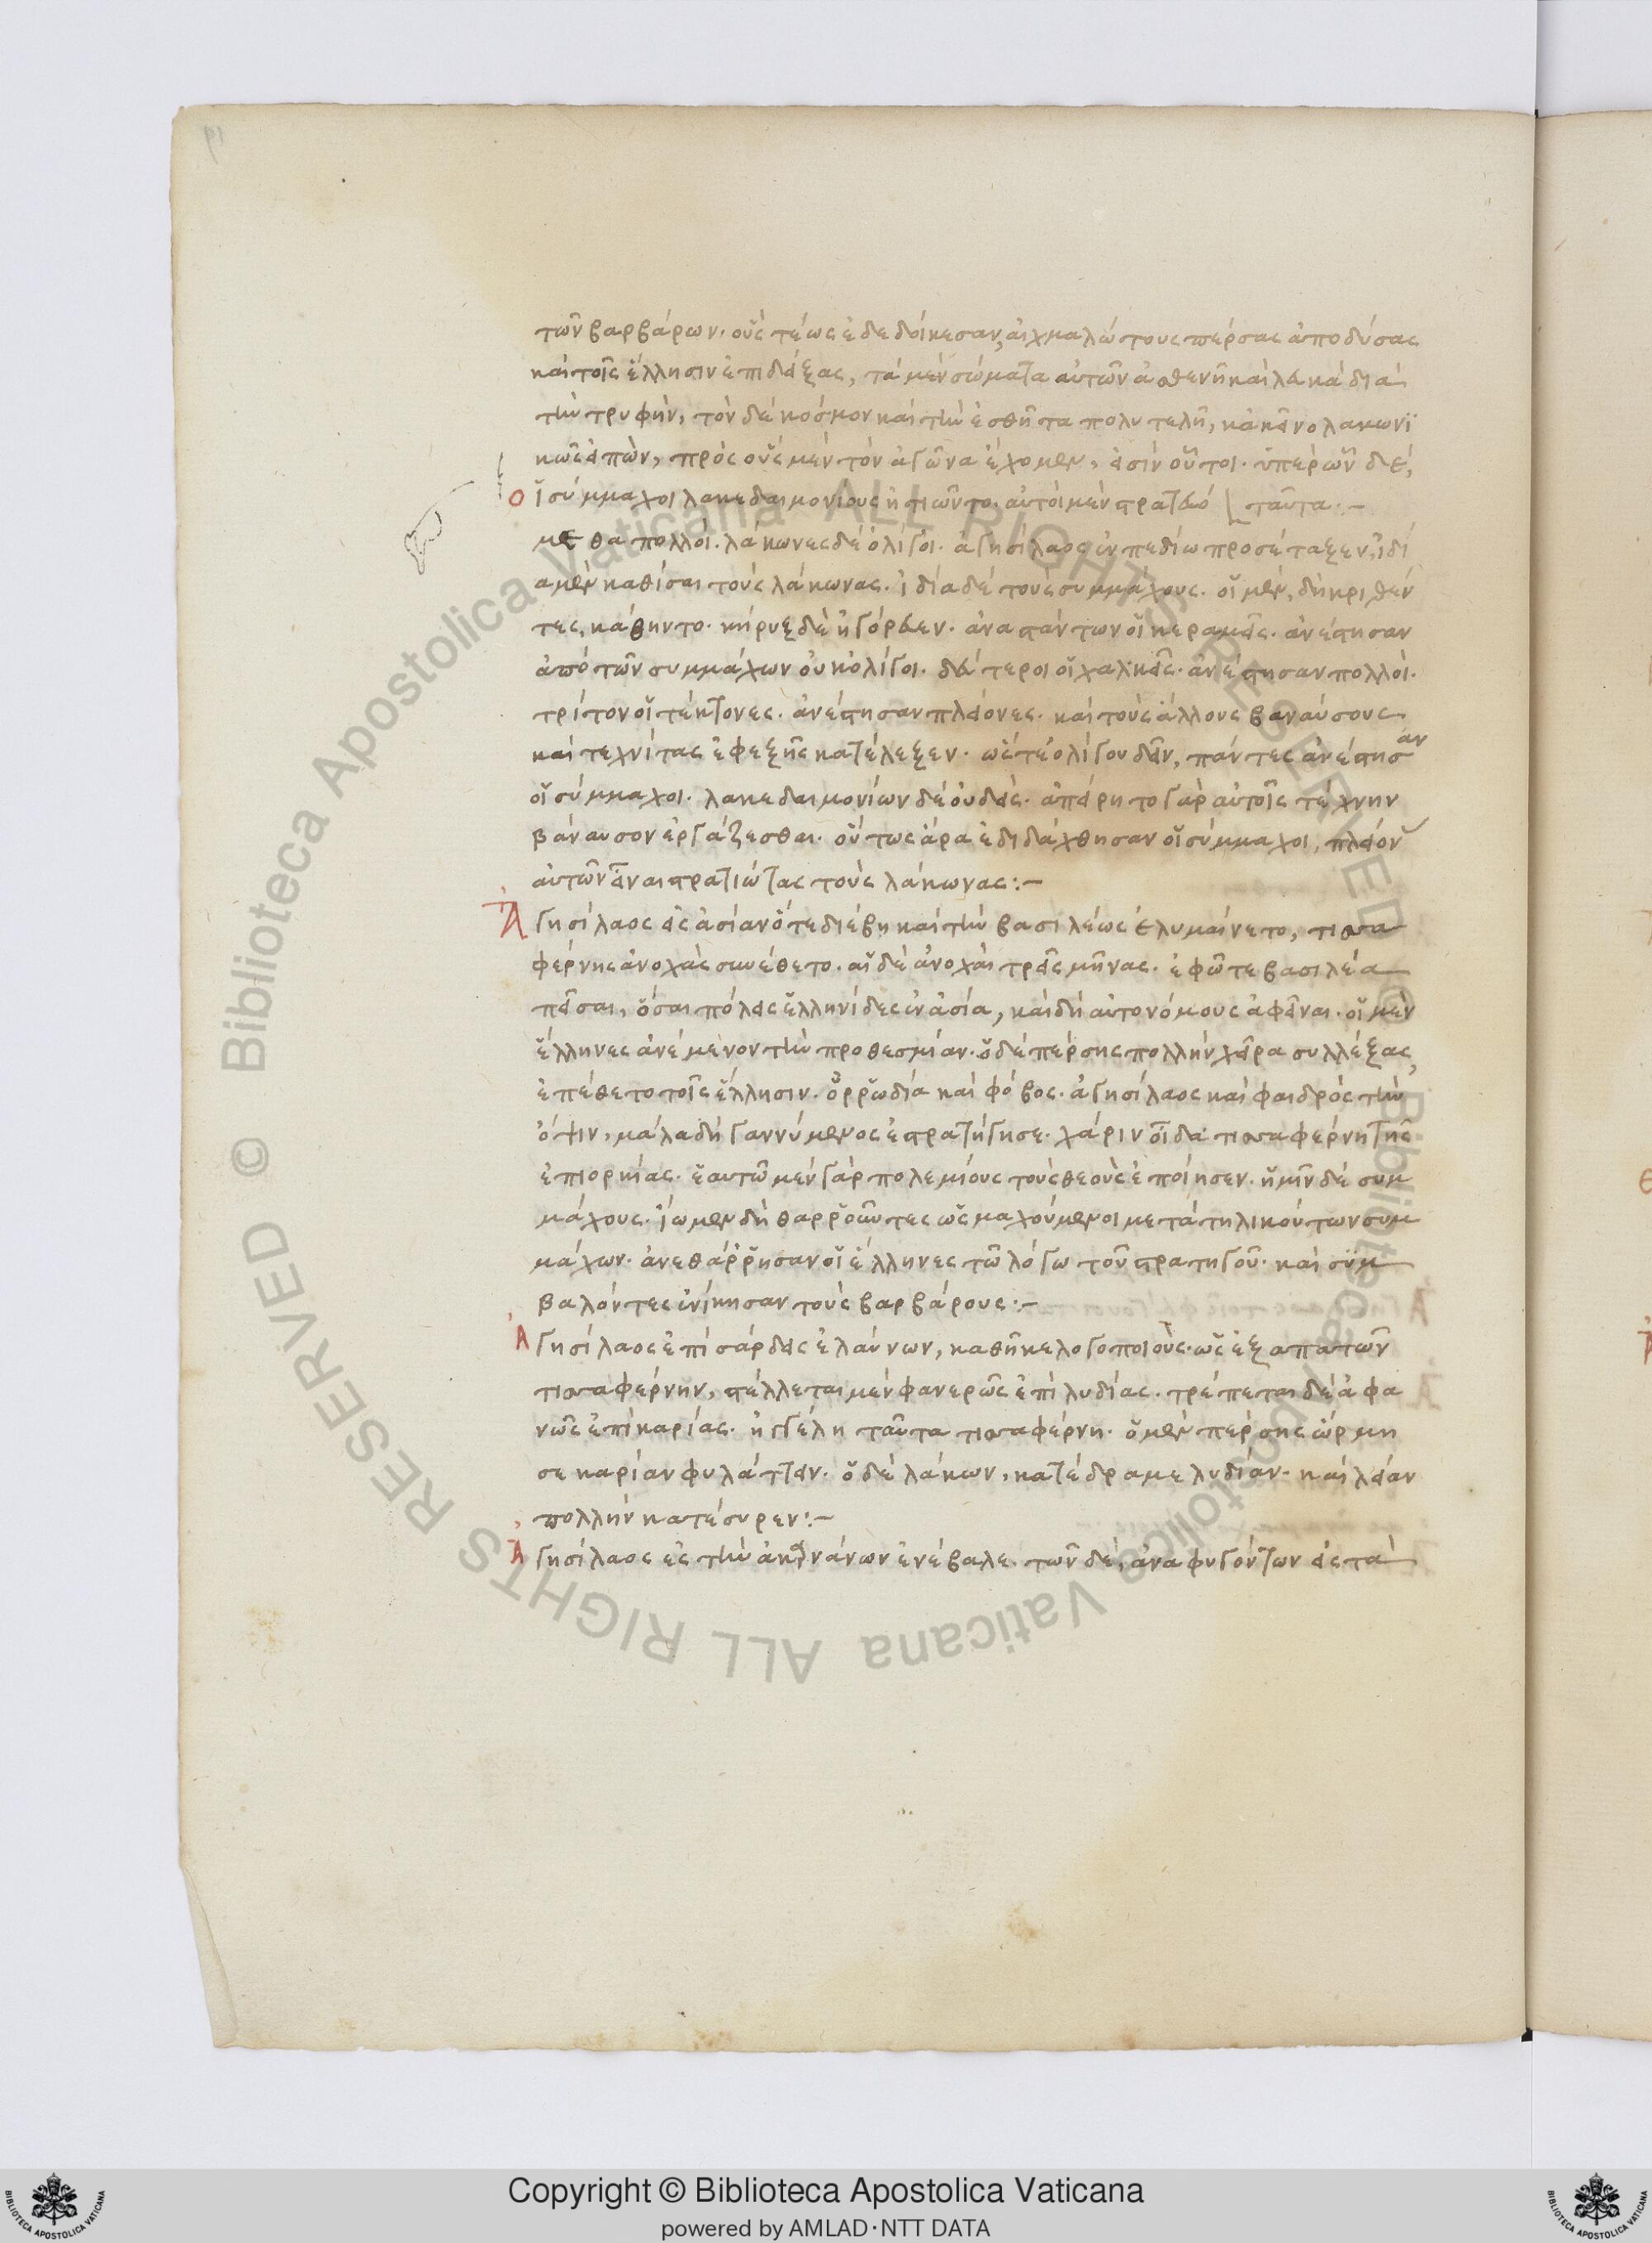 τῶν βαρβάρων. οὓς τέως ἐδεδοίκεσαν, αἰχμαλώτους πέρσας ἀποδύσας
καὶ τοῖς ἕλλησιν ἐπιδείξας, τὰ μὲν σώματα αὐτῶν ἀσθενῆ καὶ λευκὰ διὰ
τὴν τρυφὴν, τὸν δὲ κόσμον καὶ τὴν ἐσθῆτα πολυτελῆ, κἀκεῖνο λακωνι
κῶς εἰπὼν, πρὸς οὓς μὲν τὸν ἀγῶνα ἔχομεν, εἰσὶν οὗτοι. ὑπὲρ ὧν δὲ,
Οἱ σύμμαχοι λακεδαιμονίους ἠτιῶντο. αὐτοὶ μὲν στρατευό ταῦτα:–
μεθα πολλοί. λάκωνες δὲ ὀλίγοι. ἀγησίλαος ἐν πεδίω προσέταξεν, ἰδί
α μὲν καθίσαι τοὺς λάκωνας. ἰδία δὲ τοὺς συμμάχους. οἱ μὲν, δὴ κριθέν
τες, κάθηντο. κήρυξ δὲ ἠγόρευεν. ἀνα πάντων οἱ κεραμεῖς. ἀνέστησαν
ἀπὸ τῶν συμμάχων οὐκ ὀλίγοι. δεύτεροι οἱ χαλκεῖς. ἀνέστησαν πολλοί.
τρίτον οἱ τέκτονες. ἀνέστησαν πλείονες. καὶ τοὺς ἄλλους βαναύσους
καὶ τεχνίτας ἐφεξῆς κατέλεξεν. ὥστε ὀλίγου δεῖν, πάντες ἀνέστησαν
οἱ σύμμαχοι. λακεδαιμονίων δὲ οὐδείς. ἀπείρητο γὰρ αὐτοῖς τέχνην
βάναυσον ἐργάζεσθαι. οὕτως ἄρα ἐδιδάχθησαν οἱ σύμμαχοι, πλείονας
αὐτῶν εἶναι στρατιώτας τοὺς λάκωνας:–
Ἀγησίλαος εἰς ἀσίαν ὅτε διέβη καὶ τὴν βασιλέως ἐλυμαίνετο, τισσα
φέρνης ἀνοχὰς συνέθετο. αἱ δὲ ἀνοχαὶ τρεῖς μῆνας. ἐφ ὧ τε βασιλέα
πεῖσαι, ὅσαι πόλεις ἑλληνίδες ἐν ἀσία, καὶ δὴ αὐτονόμους ἀφεῖναι. οἱ μὲν
ἕλληνες ἀνέμενον τὴν προθεσμίαν. ὁ δὲ πέρσης πολλὴν χεῖρα συλλέξας,
ἐπέθετο τοῖς ἕλλησιν. ὀρρωδία καὶ φόβος. ἀγησίλαος καὶ φαιδρὸς τὴν
ὄψιν, μάλα δὴ γαννύμενος ἐστρατήγησε. χάριν οἶδα τισσαφέρνη τῆς
ἐπιορκίας. ἑαυτῶ μὲν γὰρ πολεμίους τοὺς θεοὺς ἐποίησεν. ἡμῖν δὲ συμ
μάχους. ἴωμεν δὴ θαρροῦντες ὡς μαχούμενοι μετὰ τηλικούτων συμ
μάχων. ἀνεθάρρησαν οἱ ἕλληνες τῶ λόγω τοῦ στρατηγοῦ. καὶ συμ
βαλόντες ἐνίκησαν τοὺς βαρβάρους:–
Ἀγησίλαος ἐπὶ σάρδεις ἐλαύνων, καθῆκε λογοποιοὺς. ὡς ἐξαπατῶν
τισσαφέρνην, στέλλεται μὲν φανερῶς ἐπὶ λυδίας. τρέπεται δὲ ἀφα
νῶς ἐπὶ καρίας. ἠγγέλη ταῦτα τισσαφέρνη. ὁ μὲν πέρσης ὥρμη
σε καρίαν φυλάττειν. ὁ δὲ λάκων, κατέδραμε λυδίαν. καὶ λείαν
πολλὴν κατέσυρεν:–
Ἀγησίλαος εἰς τὴν ἀκαρνάνων ἐνέβαλε. τῶν δὲ, ἀναφυγόντων εἰς τὰ
Copyright © Biblioteca Apostolica Vaticana
powered by AMLAD·NTT DATA